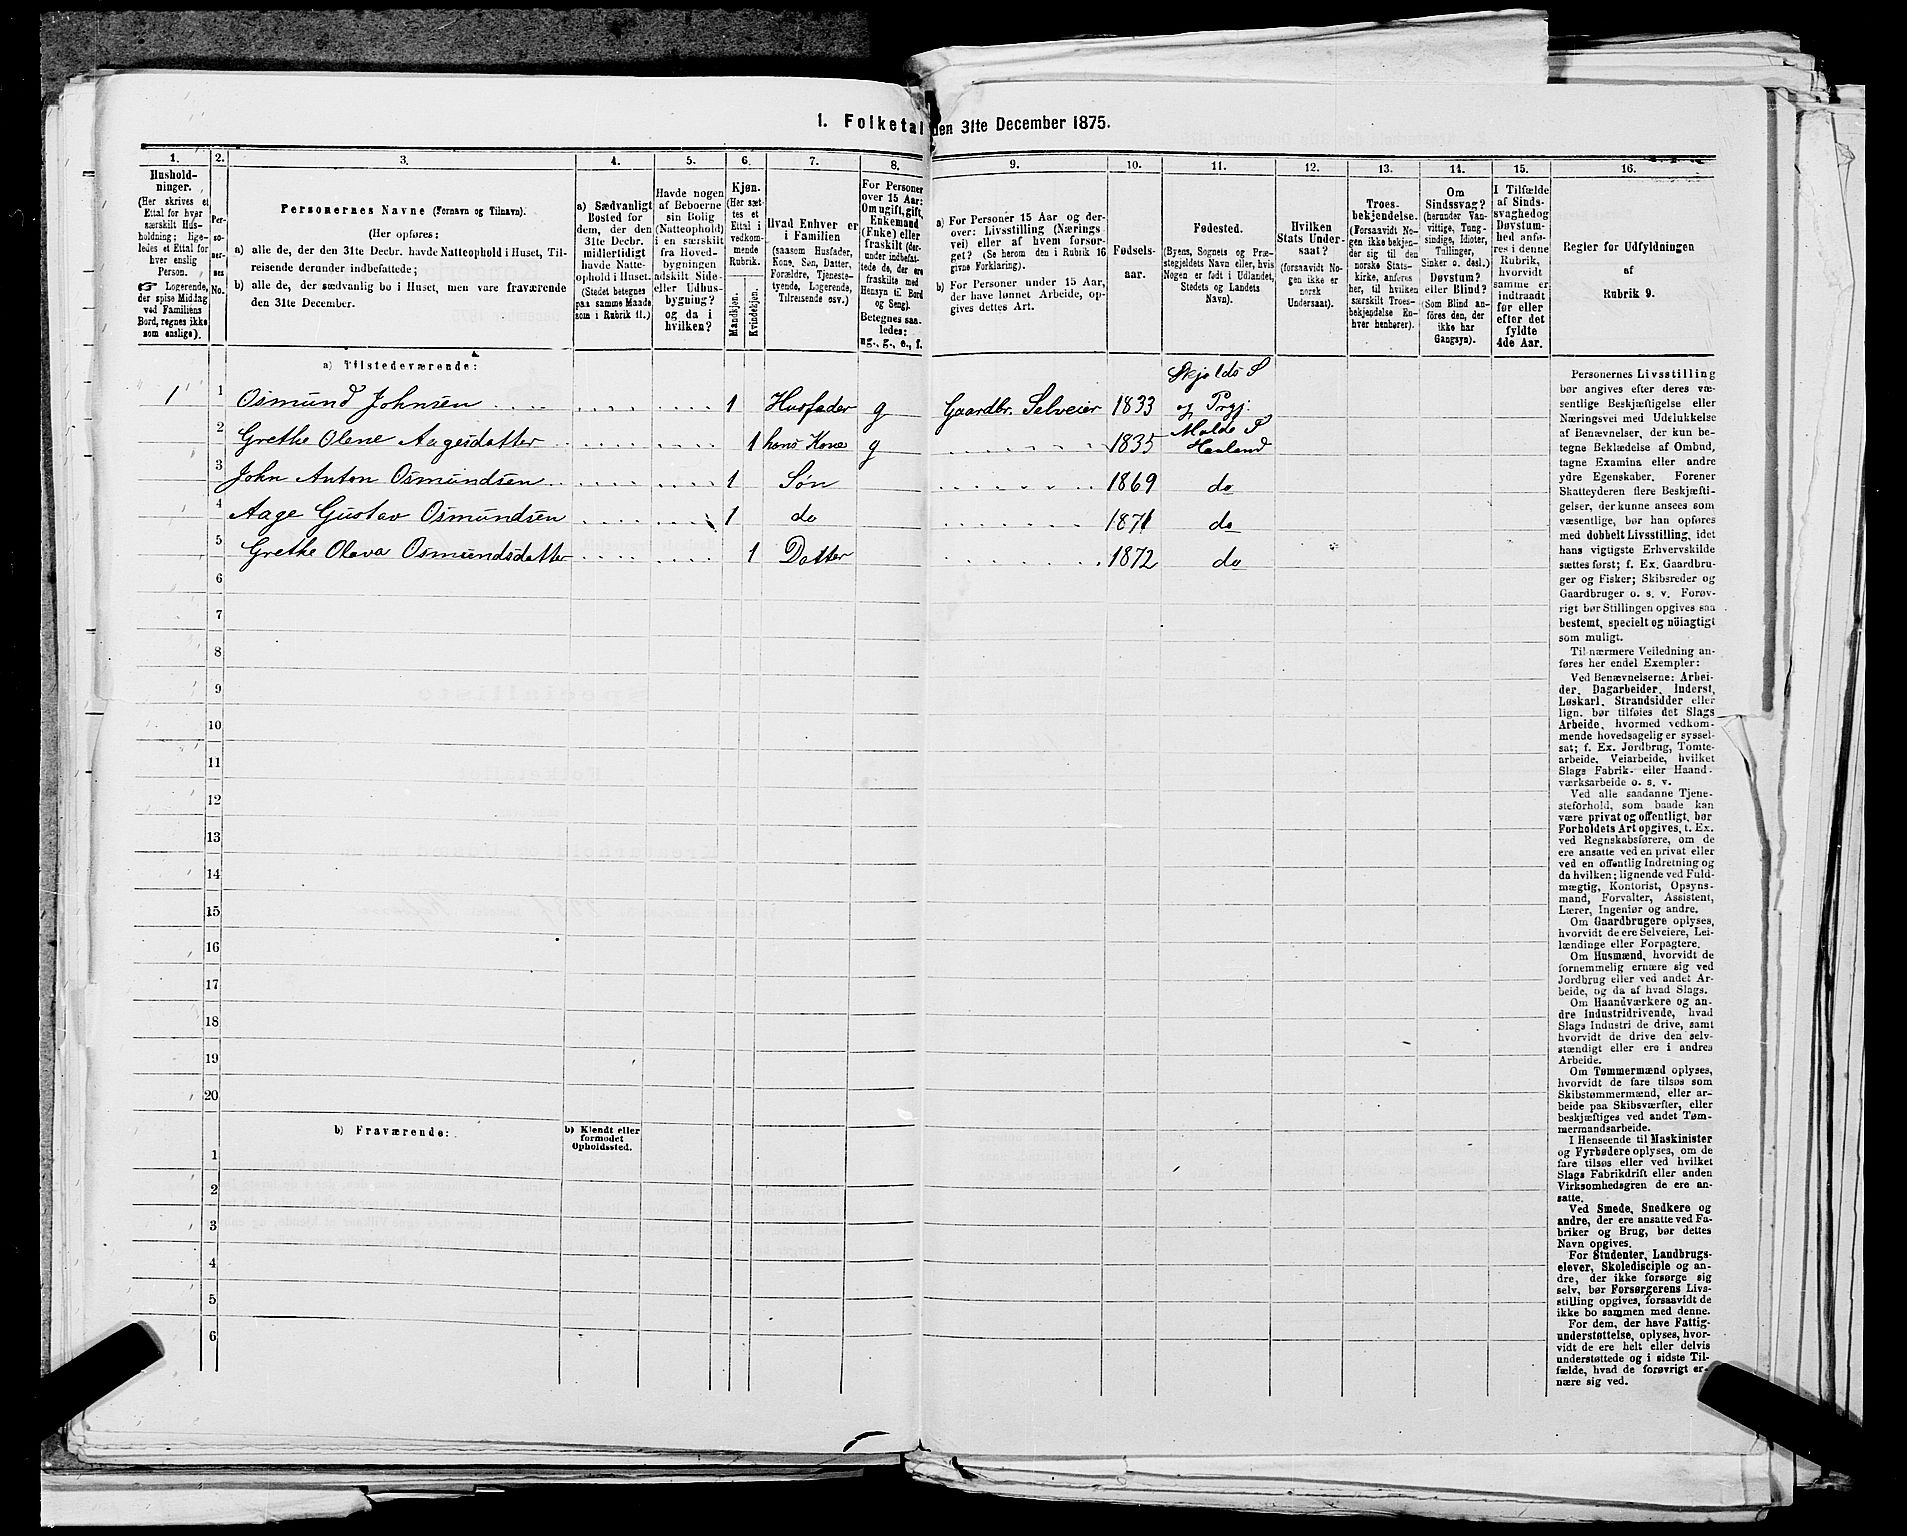 1. Folketal den 31te December 1875.
1. 2. 3. 4. 5. 6. 7. 8. 9. 10. 11. 12. 13. 14. 15. 16.
Hushold-
ninger.
(Her skrives et
Ettal for hver
særskilt Hus-
holdning; lige-
ledes et Ettal for
hver enslig
Person.
☞ Logerende,
der spise Middag
ved Familiens
Bord, regnes ikke
som enslige).
Per-
so-
ner-
nes
No.
Personernes Navne (Fornavn og Tilnavn).
(Her opføres:
a) alle de, der den 31te Decbr. havde Natteophold i Huset, Til-
reisende derunder indbefattede;
b) alle de, der sædvanlig bo i Huset, men vare fraværende
den 31te December.
a) Sædvanligt
Bosted for
dem, der den
31te Decbr.
midlertidigt
havde Natte-
ophold i Huset.
(Stedet betegnes
paa samme Maade
som i Rubrik 11.)
Havde nogen
af Beboerne
sin Bolig
(Natteophold)
i en særskilt
fra Hoved-
bygningen
adskilt Side-
eller Udhus-
bygning?
og da i
hvilken?
Kjøn.
(Her sæt-
tes et
Ettal i
vedkom-
mende
Rubrik.
Mandkjøn.
Kvindekjøn.
Hvad Enhver er
i Familien
(saasom Husfader,
Kone, Søn, Datter,
Forældre, Tjeneste-
tyende, Logerende,
Tilreisende osv.)
For Personer
over 15 Aar:
Om ugift, gift,
Enkemand
(Enke) eller
fraskilt (der-
under indbefat-
tede de, der ere
fraskilte med
Hensyn til Bord
og Seng).
Betegnes saa-
ledes:
ug., g., e., f.
a) For Personer 15 Aar og der-
over: Livsstilling (Nærings
vei) eller af hvem forsør-
get? (Se herom den i Rubrik 16
givne Forklaring).
b) For Personer under 15 Aar,
der have lønnet Arbeide, op-
gives dettes Art.
Fødsels-
aar.
Fødested.
(Byens, Sognets og Præ-
stegjeldets Navn eller, hvis
Nogen er født i Udlandet,
Stedets og Landets
Navn).
Hvilken
Stats Under-
saat?
(forsaavidt No-
gen ikke er
norsk
Undersaat).
Troes-
bekjendelse.
(Forsaavidt No-
gen ikke bekjen-
der sig til den
norske Stats-
kirke, anføres
her, til hvilken
særskilt Troes-
bekjendelse En-
hver henhører).
Om
Sindssvag?
(herunder Van-
vittige, Tung-
sindige, Idioter,
Tullinger,
Sinker o. desl.)
Døvstum?
eller Blind?
(Som Blind an-
føres den, der
ikke har
Gangsyn).
I Tilfælde
af Sinds-
svaghed og
Døvstum-
hed anfø-
res i denne
Rubrik,
hvorvidt
samme er
indtraadt
før eller
efter det
fyldte
4de Aar.
Regler for Udfyldningen
af
Rubrik 9.
a) Tilstedeværende:
1 1 Osmund Johnsen 1 Husfader g Gaardbr. Selveier 1833 Skjolds S og Prgj.
2 Grethe Olene Aagesdatter 1 hans Kone g 1835
3 John Anton Osmundsen 1 Søn 1869 do
4 Aage Gustav Osmundsen 1 do 1871 do
5 Grethe Olava Osmundsdatter 1 Datter 1872 do
6
7
8
9
10
11
12
13
14
15
16
17
18
19
20
b) Fraværende:
b) Kjendt eller
formodet
Opholdssted.
1
2
3
4
5
6
Personernes Livsstilling
bør angives efter deres væ-
sentlige Beskjæftigelse eller
Næringsvei med Udelukkelse
af Benævnelser, der kun be-
tegne Beklædelse af Ombud,
tagne Examina eller andre
ydre Egenskaber. Forener
Skatteyderen flere Beskjæfti-
gelser, der kunne ansees som
væsentlige, bør han opføres
med dobbelt Livsstilling, idet
hans vigtigste Erhvervskilde
sættes først; f. Ex. Gaardbru-
ger og Fisker; Skibsreder og
Gaardbruger o. s. v. Forøv-
rigt bør Stillingen opgives saa
bestemt, specielt og nöiagtigt
som muligt.
Til nærmere Veiledning an-
føres her endel Exempler:
Ved Benævnelserne: Arbei-
der, Dagarbeider, Inderst,
Løskarl, Strandsidder eller
lign. bør tilføies det Slags
Arbeide, hvormed vedkom-
mende hovedsagelig er syssel-
sat; f. Ex. Jordbrug, Tomte-
arbeide, Veiarbeide, hvilket
Slags Fabrik- eller Haand-
værksarbeide o. s. v.
Ved alle saadanne Tjene-
steforhold, som baade kan
være privat og offentligt, bør
Forholdets Art opgives, t. Ex.
ved Regnskabsførere, om de
ere ansatte ved en privat eller
ved en offentlig Indretning og
da hvilken; lignende ved Fuld-
mægtig, Kontorist, Opsyns-
mand, Forvalter, Assistent,
Lærer, Ingeniør og andre.
Om Gaardbrugere oplyses,
hvorvidt de ere Selveiere, Lei-
lændinge eller Forpagtere.
Om Husmænd, hvorvidt de
fornemmelig ernære sig ved
Jordbrug eller ved andet Ar-
beide, og da af hvad Slags.
Om Haandværkere og an-
dre Industridrivende, hvad
Slags Industri de drive, samt
hvorvidt de drive den selv-
stændigt eller ere i andres
Arbeide.
Om Tømmermænd oplyses,
hvorvidt de fare tilsøs som
Skibstømmermænd, eller ar-
beide paa Skibsværfter, eller
beskjæftiges ved andet Tøm-
mermandsarbeide.
I Henseende til Maskinister
og Fyrbødere oplyses, om de
fare tilsøs eller ved hvilket
Slags Fabrikdrift eller anden
Virksomhedsgren de ere an-
satte.
Ved Smede, Snedkere og
andre, der ere ansatte ved Fa-
briker og Brug, bør dettes
Navn opgives.
For Studenter, Landbrugs-
elever, Skoledisciple og an-
dre, der ikke forsørge sig
selv, bør Forsørgerens Livs-
stilling opgives, forsaavidt de
ikke bo sammen med denne.
For dem, der have Fattig-
understøttelse, oplyses, hvor-
vidt de ere helt eller delvis
understøttede og i sidste Til-
fælde, hvad de forøvrigt er-
nære sig ved.